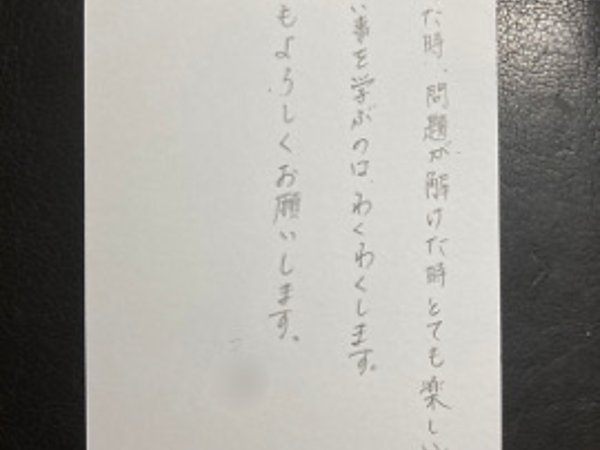 た時、問題が解けた時とても楽しい
い事を学ぶのは、わくわくします。
もよろしくお願いします。